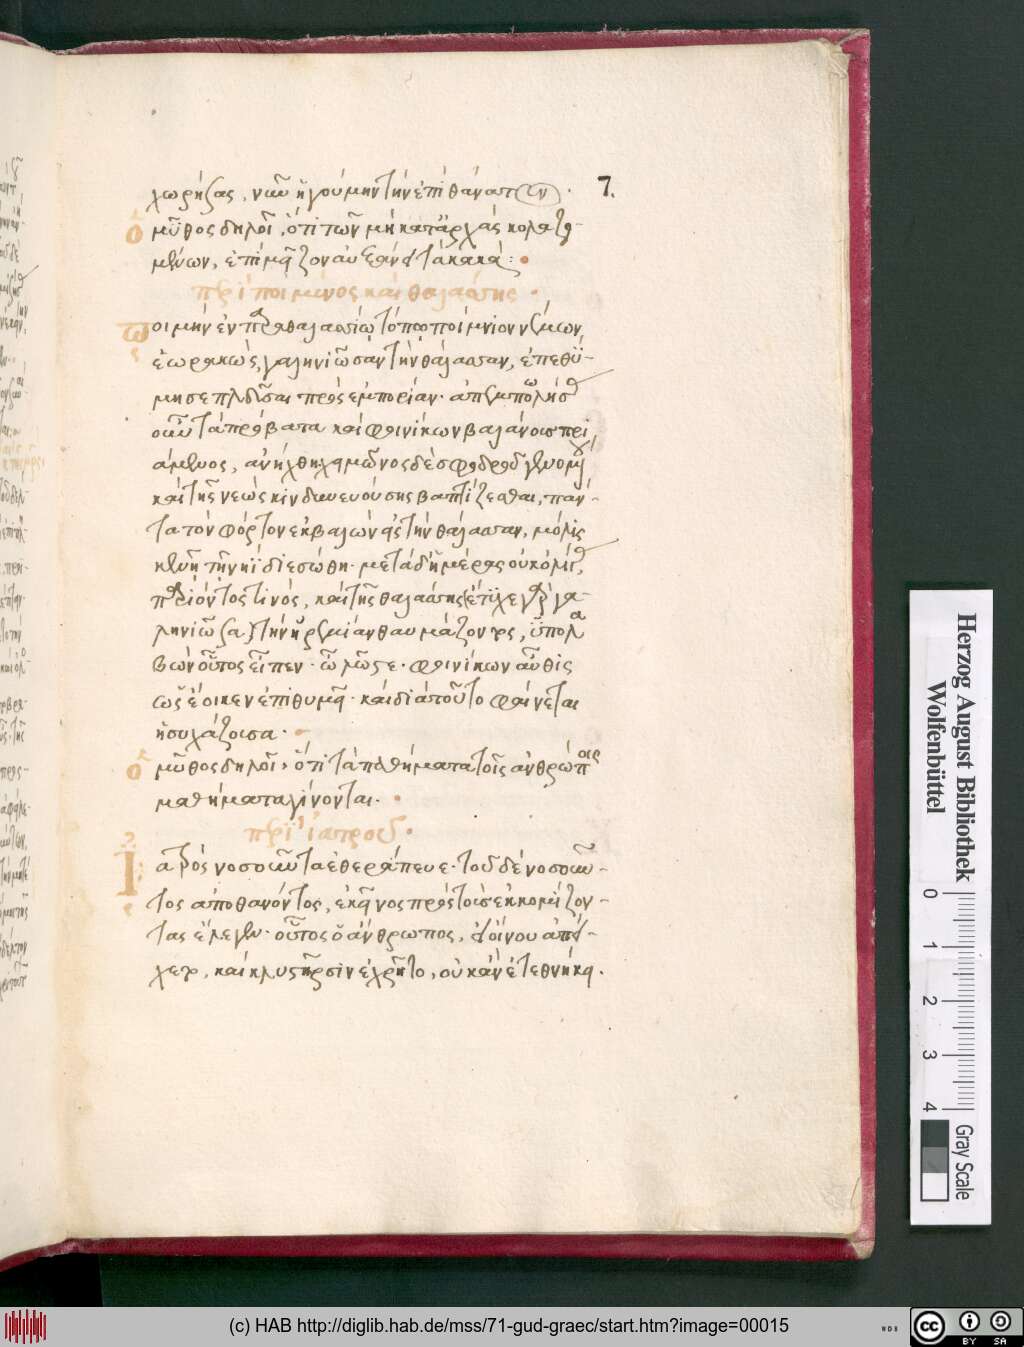 χωρήσας, νῦν ἡγούμην τὴν ἐπὶ θάνατον.
7.
ὁ μῦθος δηλοῖ, ὅτι τῶν μὴ κατ' ἀρχὰς κολαζο-
μένων, ἐπὶ μεῖζον αὐξάνει τὰ κακά:
περὶ ποιμένος καὶ θαλάσσης.
ποιμὴν ἐν παραθαλασσίῳ τόπῳ ποίμνιον νέμων
ἑωρακὼς γαληνιῶσαν τὴν θάλασσαν, ἐπεθύ-
μησε πλεῦσαι πρὸς ἐμπορίαν. ἀπεμπολήσας
οὖν τὰ πρόβατα καὶ φοινίκων βαλάνους πρι-
άμενος, ἀνήχθη. χειμῶνος δὲ σφοδροῦ γενομένου
καὶ τῆς νεὼς κινδυνευούσης βαπτίζεσθαι, πάν-
τα τὸν φόρτον ἐκβαλὼν εἰς τὴν θάλασσαν, μόλις
κενῇ τῇ νηῒ διεσώθη. μετὰ δ' ἡμέρας οὐκ ὀλίγας,
παριόντος τινός, καὶ τῆς θαλάσσης ἔτυχε γὰρ γα-
ληνιῶσα τὴν ἠρεμίαν θαυμάζοντος, ὑπολα-
βὼν οὗτος εἶπεν. ὦ λῷστε. φοινίκων αὖθις
ὡς ἔοικεν ἐπιθυμεῖ. καὶ διὰ τοῦτο φαίνεται
ἡσυχάζουσα.
ὁ μῦθος δηλοῖ, ὅτι τὰ παθήματα τοῖς ἀνθρώποις
μαθήματα γίνονται.
περὶ ἰατροῦ.
Ἰατρὸς νοσοῦντα ἐθεράπευε. τοῦ δὲ νοσοῦν-
τος ἀποθανόντος, ἐκεῖνος πρὸς τοὺς ἐκκομίζον-
τας ἔλεγεν. οὗτος ὁ ἄνθρωπος, εἰ οἴνου ἀπεί-
χετο, καὶ κλυστῆρσιν ἐχρῆτο, οὐκ ἂν ἐτεθνήκει.
Herzog August Bibliothek
Wolfenbüttel
0 1 2 3 4
Gray Scale
(c) HAB http://diglib.hab.de/mss/71-gud-graec/start.htm?image=00015
WDB
cc BY SA